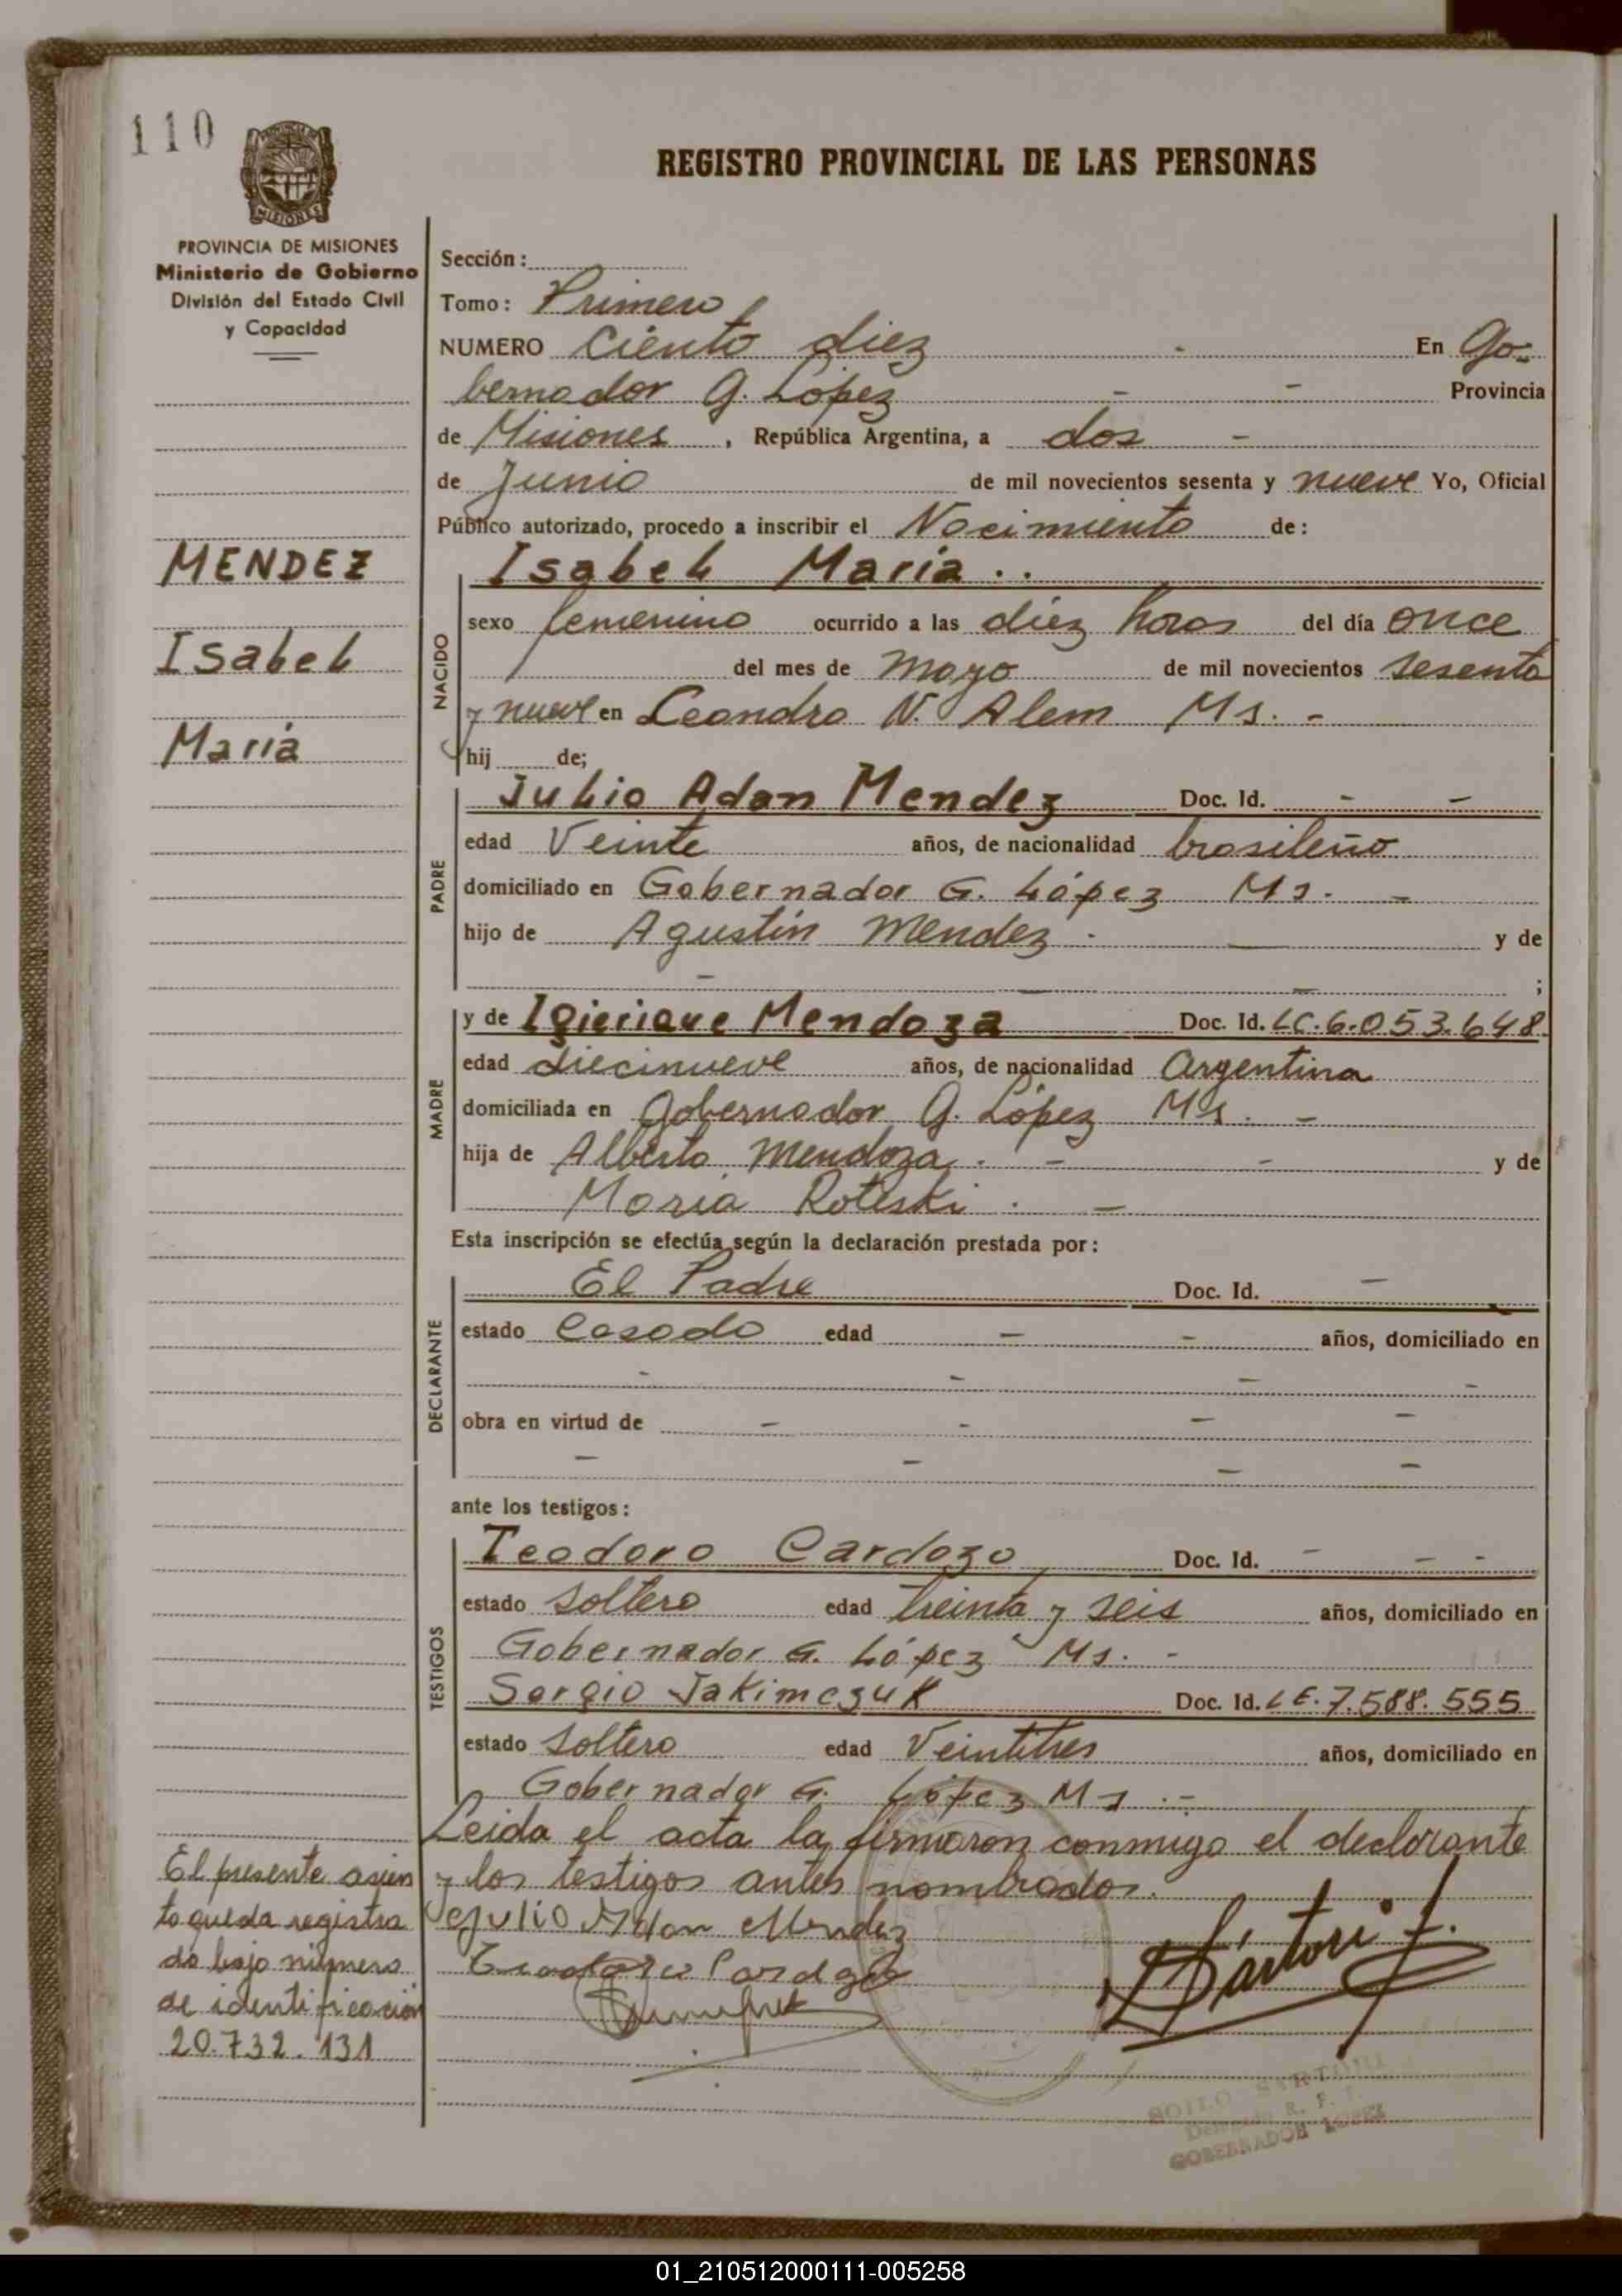 110
REGISTRO PROVINCIAL DE LAS PERSONAS
PROVINCIA DE MISIONES
Ministerio de Gobierno
División del Estado Civil
y Capacidad
MENDEZ
Isabel
María
Sección:
Tomo: Primero
NUMERO Ciento diez En Go-
bernador G. López Provincia
de Misiones, República Argentina, a dos -
de Junio de mil novecientos sesenta y nueve Yo, Oficial
Público autorizado, procedo a inscribir el Nacimiento de:
NACIDO
Isabel María . .
sexo femenino ocurrido a las diez horas del día once
del mes de Mayo de mil novecientos sesenta
y nueve en Leandro N. Alem Ms. -
hij de;
PADRE
Julio Adan Mendez Doc. Id. - -
edad Veinte años, de nacionalidad brasileño
domiciliado en Gobernador G. López Ms. -
hijo de Agustín Mendez . - y de
- - - ;
MADRE
y de Mendoza Doc. Id. LC.6.053.648.
edad diecinueve años, de nacionalidad Argentina
domiciliada en Gobernador G. López Ms. -
hija de Alberto Mendoza . - - y de
María Roteski . -
Esta inscripción se efectúa según la declaración prestada por:
DECLARANTE
El Padre Doc. Id. -
estado Casado edad - - años, domiciliado en
- - - -
obra en virtud de - - - -
- - - -
ante los testigos:
TESTIGOS
Teodoro Cardozo Doc. Id. - - -
estado Soltero edad treinta y seis años, domiciliado en
Gobernador G. López Ms. -
Sergio Jakimczuk Doc. Id. LE.7.588.555
estado Soltero edad Veintitres años, domiciliado en
Gobernador G. López Ms .-
Leida el acta la firmaron conmigo el declarante
y los testigos antes nombrados.
El presente asien
to queda registra
do bajo número
de identificación
20.732.131
Julio Adan Mendez
Sartori
SARTORI
GOBERNADOR LOPEZ
01_210512000111-005258